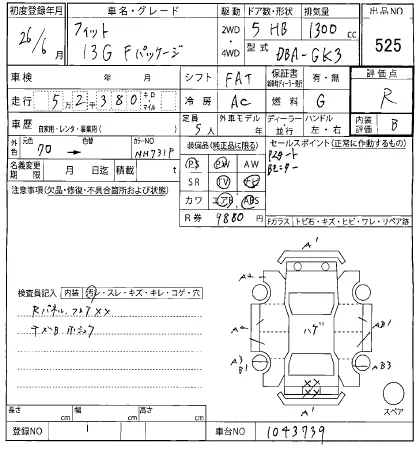 初度登録年月 車名・グレード 駆動 ドア数・形状 排気量 出品NO
26/6月 フィット 2WD 5 HB 1300cc 525
13G Fパッケージ 4WD 型式 DBA-GK3
車検 年 月 シフト FAT 保証書 有・無 評価点
走行 5万2千380キロ マイル 冷房 AC 燃料 G R
車歴 自家用・レンタ・事業用( ) 定員 5人 外車モデル 年 ディーラー 並行 ハンドル 左・右 内装 B
外色 元色 クロ → 色替 カラーNO NH731P 装備品(純正品に限る) セールスポイント(正常に作動するもの)
名義変更期限 月 日迄 積載 t PS PW AW Pスタート
SR TV ナビ Bモニター
注意事項(欠品・修復・不具合箇所および状態) カワ エアB ABS
R券 9880円
Fガラス トビ石・キズ・ヒビ・ワレ・リペア跡
A'
検査員記入 内装 汚レ・スレ・キズ・キレ・コゲ・穴
Rパネル、フロアXX
キズB、ホシュウ
A2
A2 ハゲ AB1
A3 B1 AB3
XX
XX
A'
スペア
長さ cm 幅 cm 高さ cm
登録NO 1 車台NO 1043739